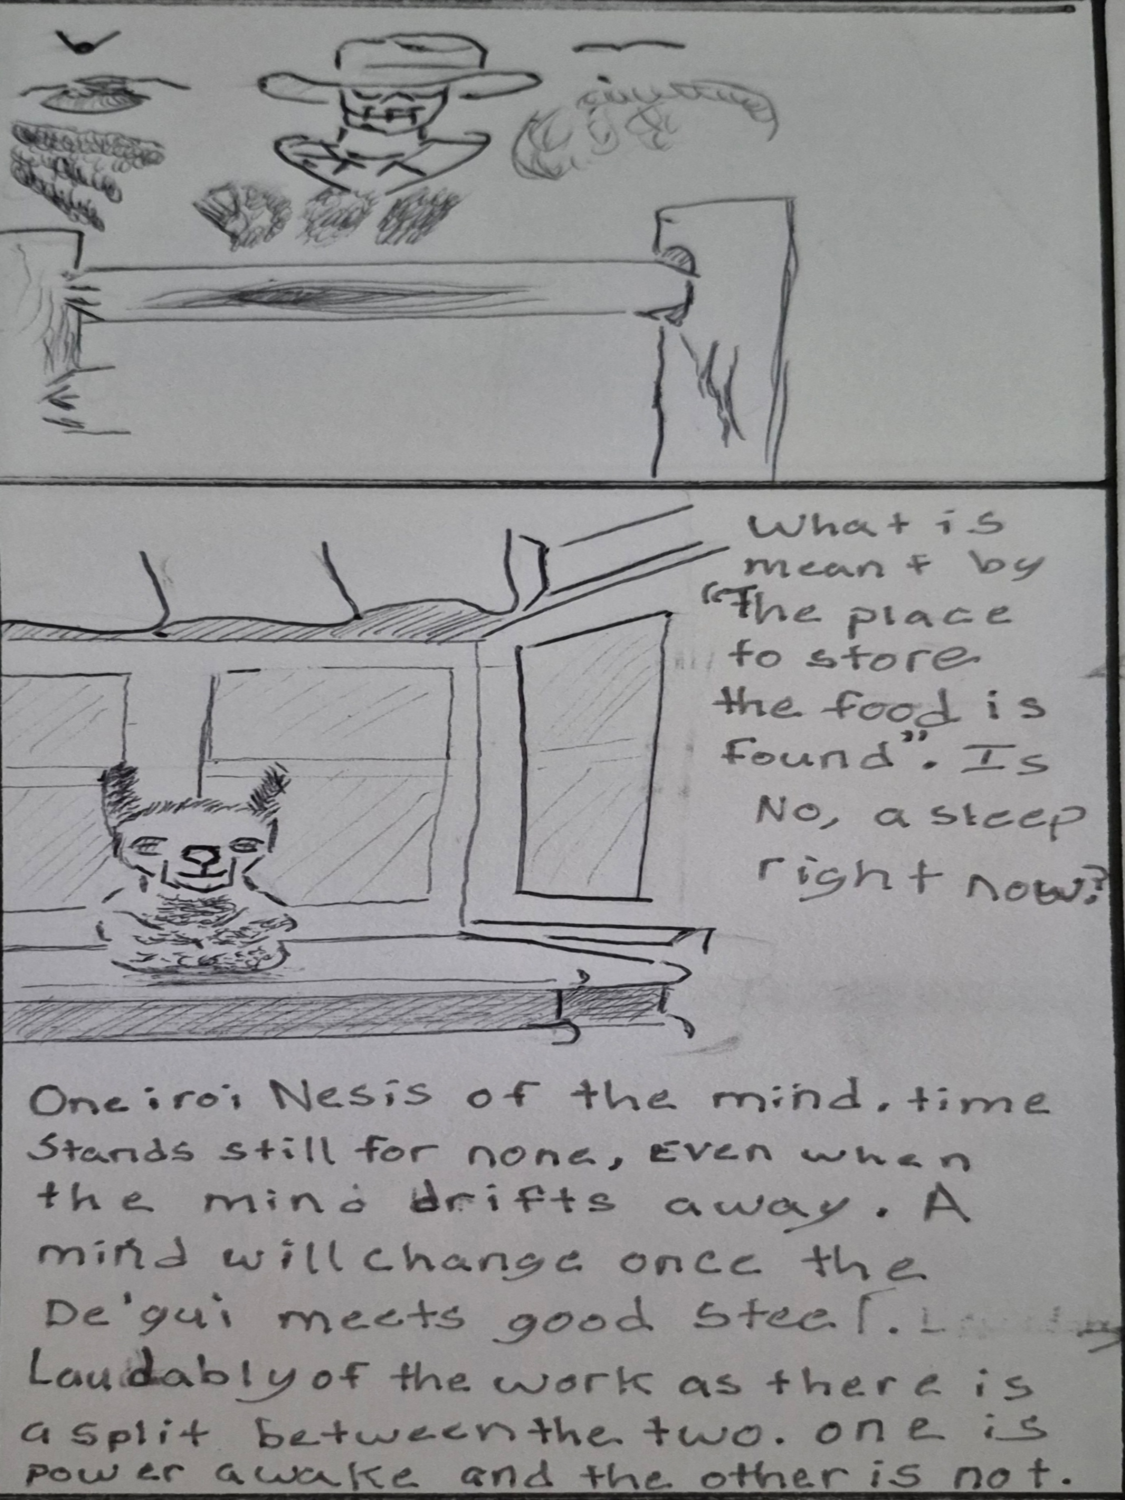 What is
meant by
"The place
to store
the food is
found". Is
No, a sleep
right now?
Oneiroi Nesis of the mind. time
Stands still for none, Even when
the mind drifts away. A
mind will change once the
De'gui meets good Steel.
Laudably of the work as there is
a split between the two. one is
power awake and the other is not.